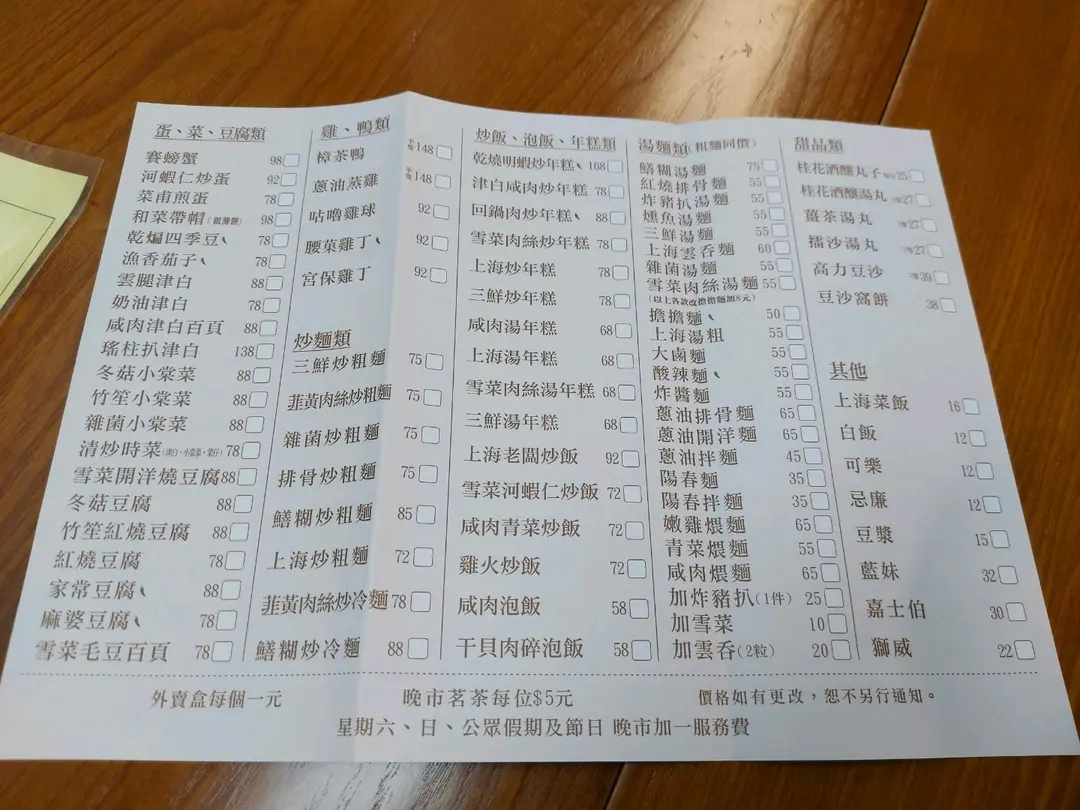 蛋、菜、豆腐類
賽螃蟹 98
河蝦仁炒蛋 92
菜甫煎蛋 78
和菜帶帽 98
乾煸四季豆 78
漁香茄子 78
雲腿津白 88
奶油津白 78
咸肉津白百頁 88
瑤柱扒津白 138
冬菇小棠菜 88
竹笙小棠菜 88
雜菌小棠菜 88
清炒時菜 78
雪菜開洋燒豆腐 88
冬菇豆腐 88
竹笙紅燒豆腐 88
紅燒豆腐 78
家常豆腐 88
麻婆豆腐 78
雪菜毛豆百頁 78
雞、鴨類
樟茶鴨 148
蔥油蒸雞 148
咕嚕雞球 92
腰菓雞丁 92
宮保雞丁 92
炒麵類
三鮮炒粗麵 75
韮黃肉絲炒粗麵 75
雜菌炒粗麵 75
排骨炒粗麵 75
鱔糊炒粗麵 85
上海炒粗麵 72
韮黃肉絲炒冷麵 78
鱔糊炒冷麵 88
炒飯、泡飯、年糕類
乾燒明蝦炒年糕 168
津白咸肉炒年糕 78
回鍋肉炒年糕 88
雪菜肉絲炒年糕 78
上海炒年糕 78
三鮮炒年糕 78
咸肉湯年糕 68
上海湯年糕 68
雪菜肉絲湯年糕 68
三鮮湯年糕 68
上海老闆炒飯 92
雪菜河蝦仁炒飯 72
咸肉青菜炒飯 72
雞火炒飯 72
咸肉泡飯 58
干貝肉碎泡飯 58
湯麵類(粗麵同價)
鱔糊湯麵 75
紅燒排骨麵 55
炸豬扒湯麵 55
燻魚湯麵 55
三鮮湯麵 55
上海雲吞麵 60
雜菌湯麵 55
雪菜肉絲湯麵 55
(以上各款改擔擔麵加8元)
擔擔麵 50
上海湯粗 55
大鹵麵 55
酸辣麵 55
炸醬麵 55
蔥油排骨麵 65
蔥油開洋麵 65
蔥油拌麵 45
陽春麵 35
陽春拌麵 35
嫩雞煨麵 65
青菜煨麵 55
咸肉煨麵 65
加炸豬扒(1件) 25
加雪菜 10
加雲吞(2粒) 20
甜品類
桂花酒釀丸子 25
桂花酒釀湯丸 27
薑茶湯丸 27
擂沙湯丸 27
高力豆沙 39
豆沙窩餅 38
其他
上海菜飯 16
白飯 12
可樂 12
忌廉 12
豆漿 15
藍妹 32
嘉士伯 30
獅威 22
外賣盒每個一元
晚市茗茶每位$5元
價格如有更改，恕不另行通知。
星期六、日、公眾假期及節日 晚市加一服務費